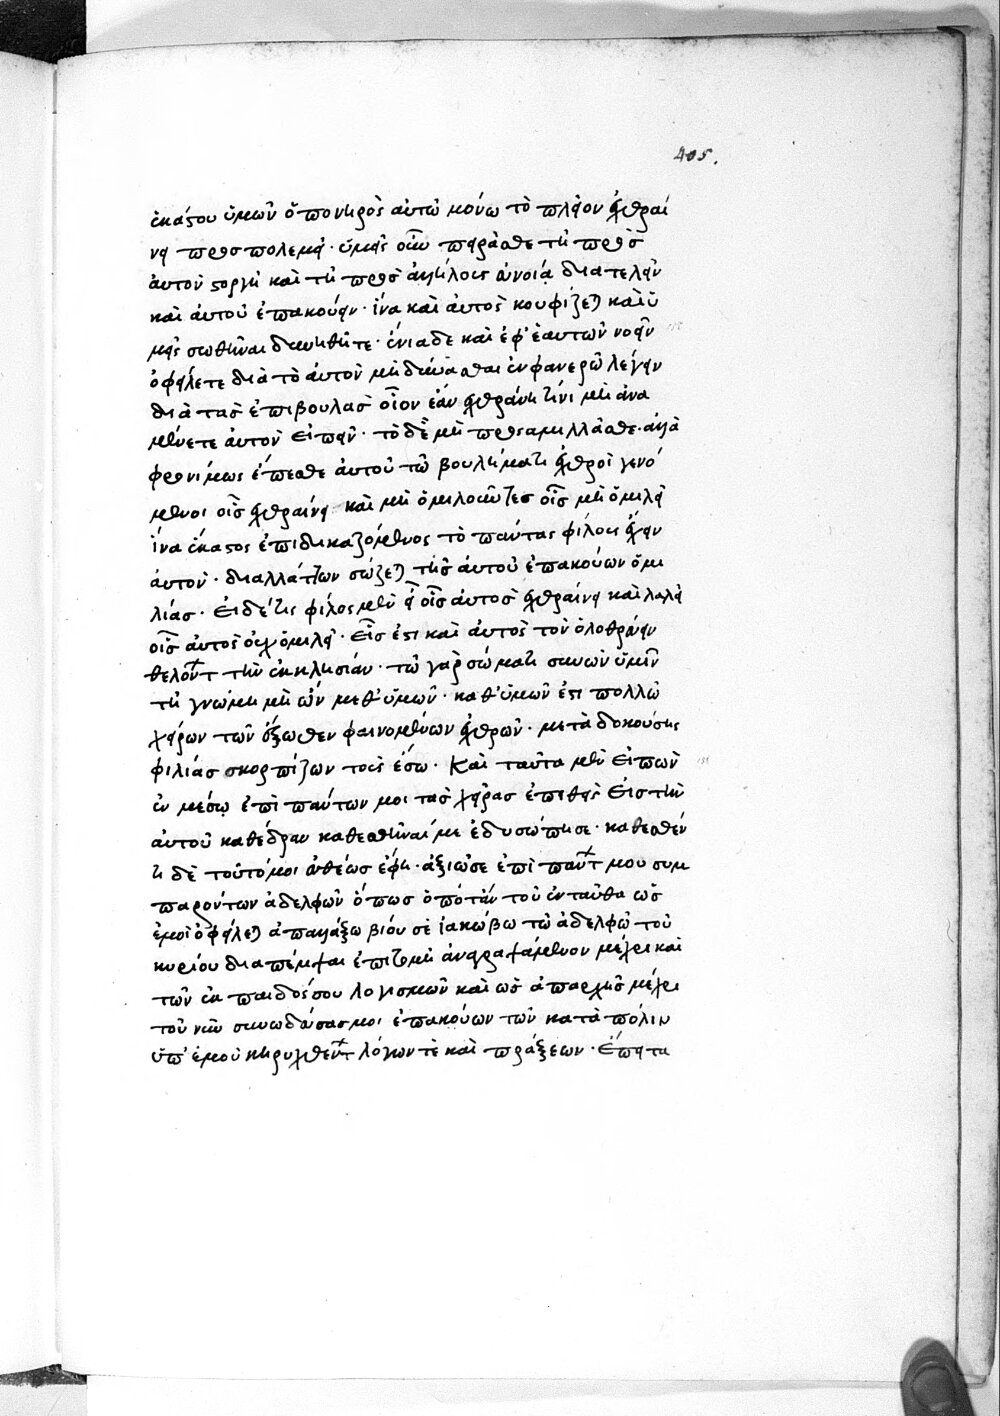 405.
ἑκάστου ὑμῶν ὁ πονηρὸς αὐτῶ μόνω τὸ πλεῖον ἐχθραί
νει προσπολεμεῖ· ὑμᾶς οὖν παρᾶσθε τῆ πρὸς
αὐτὸν στοργῆ καὶ τῆ πρὸς ἀλλήλους εὐνοία διατελεῖν
καὶ αὐτοῦ ἐπακούειν· ἵνα καὶ αὐτὸς κουφίζεται καὶ ὑ
μεῖς σωθῆναι δυνηθῆτε· ἔνια δὲ καὶ ἐφ' ἑαυτῶν νοεῖν
ὀφείλετε διὰ τὸ αὐτὸν μὴ δύνασθαι ἐν φανερῶ λέγειν
διὰ τὰς ἐπιβουλὰς οἷον ἐὰν ἐχθράνη τινὶ μὴ ἀνα
μένετε αὐτὸν εἰπεῖν· τὸ δὲ μὴ προσαμιλλᾶσθε· ἀλλὰ
φρονίμως ἕπεσθε αὐτοῦ τῶ βουλήματι ἐχθροὶ γενό
μενοι οἷς ἐχθραίνει καὶ μὴ ὁμιλοῦντες οἷς μὴ ὁμιλεῖ
ἵνα ἕκαστος ἐπιδικαζόμενος τὸ πάντας φίλους ἔχειν
αὐτὸν· διαλλάττων σώζεται τῆς αὐτοῦ ἐπακούων ὁμι
λίας· εἰ δέ τις φίλος μὲν ᾖ οἷς αὐτὸς ἐχθραίνει καὶ λαλεῖ
οἷς αὐτὸς οὐχ ὁμιλεῖ· εἷς ἐστι καὶ αὐτὸς τὸν ὀλοθρεύειν
θελόντων τὴν ἐκκλησίαν· τῶ γὰρ σώματι συνὼν ὑμῖν
τῆ γνώμη μὴ ὢν μεθ' ὑμῶν· καθ' ὑμῶν ἐστι πολλῶ
χείρων τῶν ἔξωθεν φαινομένων ἐχθρῶν· μετὰ δοκούσης
φιλίας σκορπίζων τοὺς ἔσω. Καὶ ταῦτα μὲν εἰπὼν
ἐν μέσω ἐπὶ πάντων μοι τὰς χεῖρας ἐπιθεὶς εἰς τὴν
αὐτοῦ καθέδραν καθεσθῆναί με ἐδυσώπησε· καθεσθέν
τι δὲ τοῦτό μοι εὐθέως ἔφη· ἀξιῶσε ἐπὶ πάντων μου συμ
παρόντων ἀδελφῶν ὅπως ὁπότἂν τοῦ ἐνταῦθα ὡς
ἐμοὶ ὀφείλεται ἀπαλλάξω βίου σὲ ἰακώβω τῶ ἀδελφῶ τοῦ
κυρίου διαπέμψαι ἐπιτομὴ ἀναγραψάμενον μέχρι καὶ
τῶν ἐκ παιδός σου λογισμῶν καὶ ὡς ἀπαρχῆς μέχρι
τοῦ νῦν συνωδεύσας μοι ἐπακούων τῶν κατὰ πόλιν
ὑπ' ἐμοῦ κηρυχθέντων λόγων τὲ καὶ πράξεων· ἔπειτα